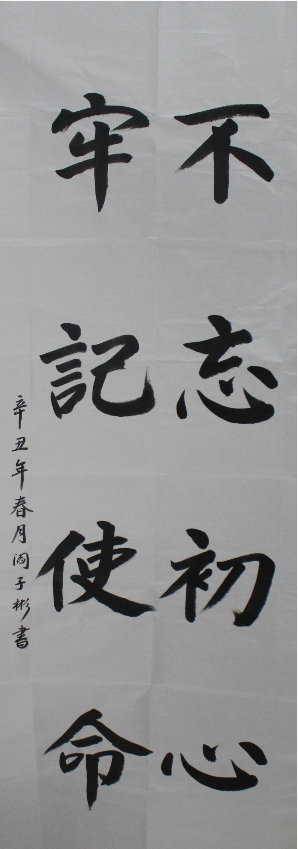 不忘初心
牢記使命
辛丑年春月阎子彬書